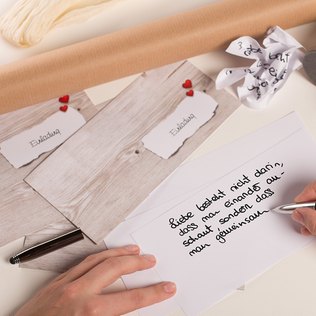 Einladung
Einladung
Liebe besteht nicht darin,
dass man einander an-
schaut, sondern dass
man gemeinsam